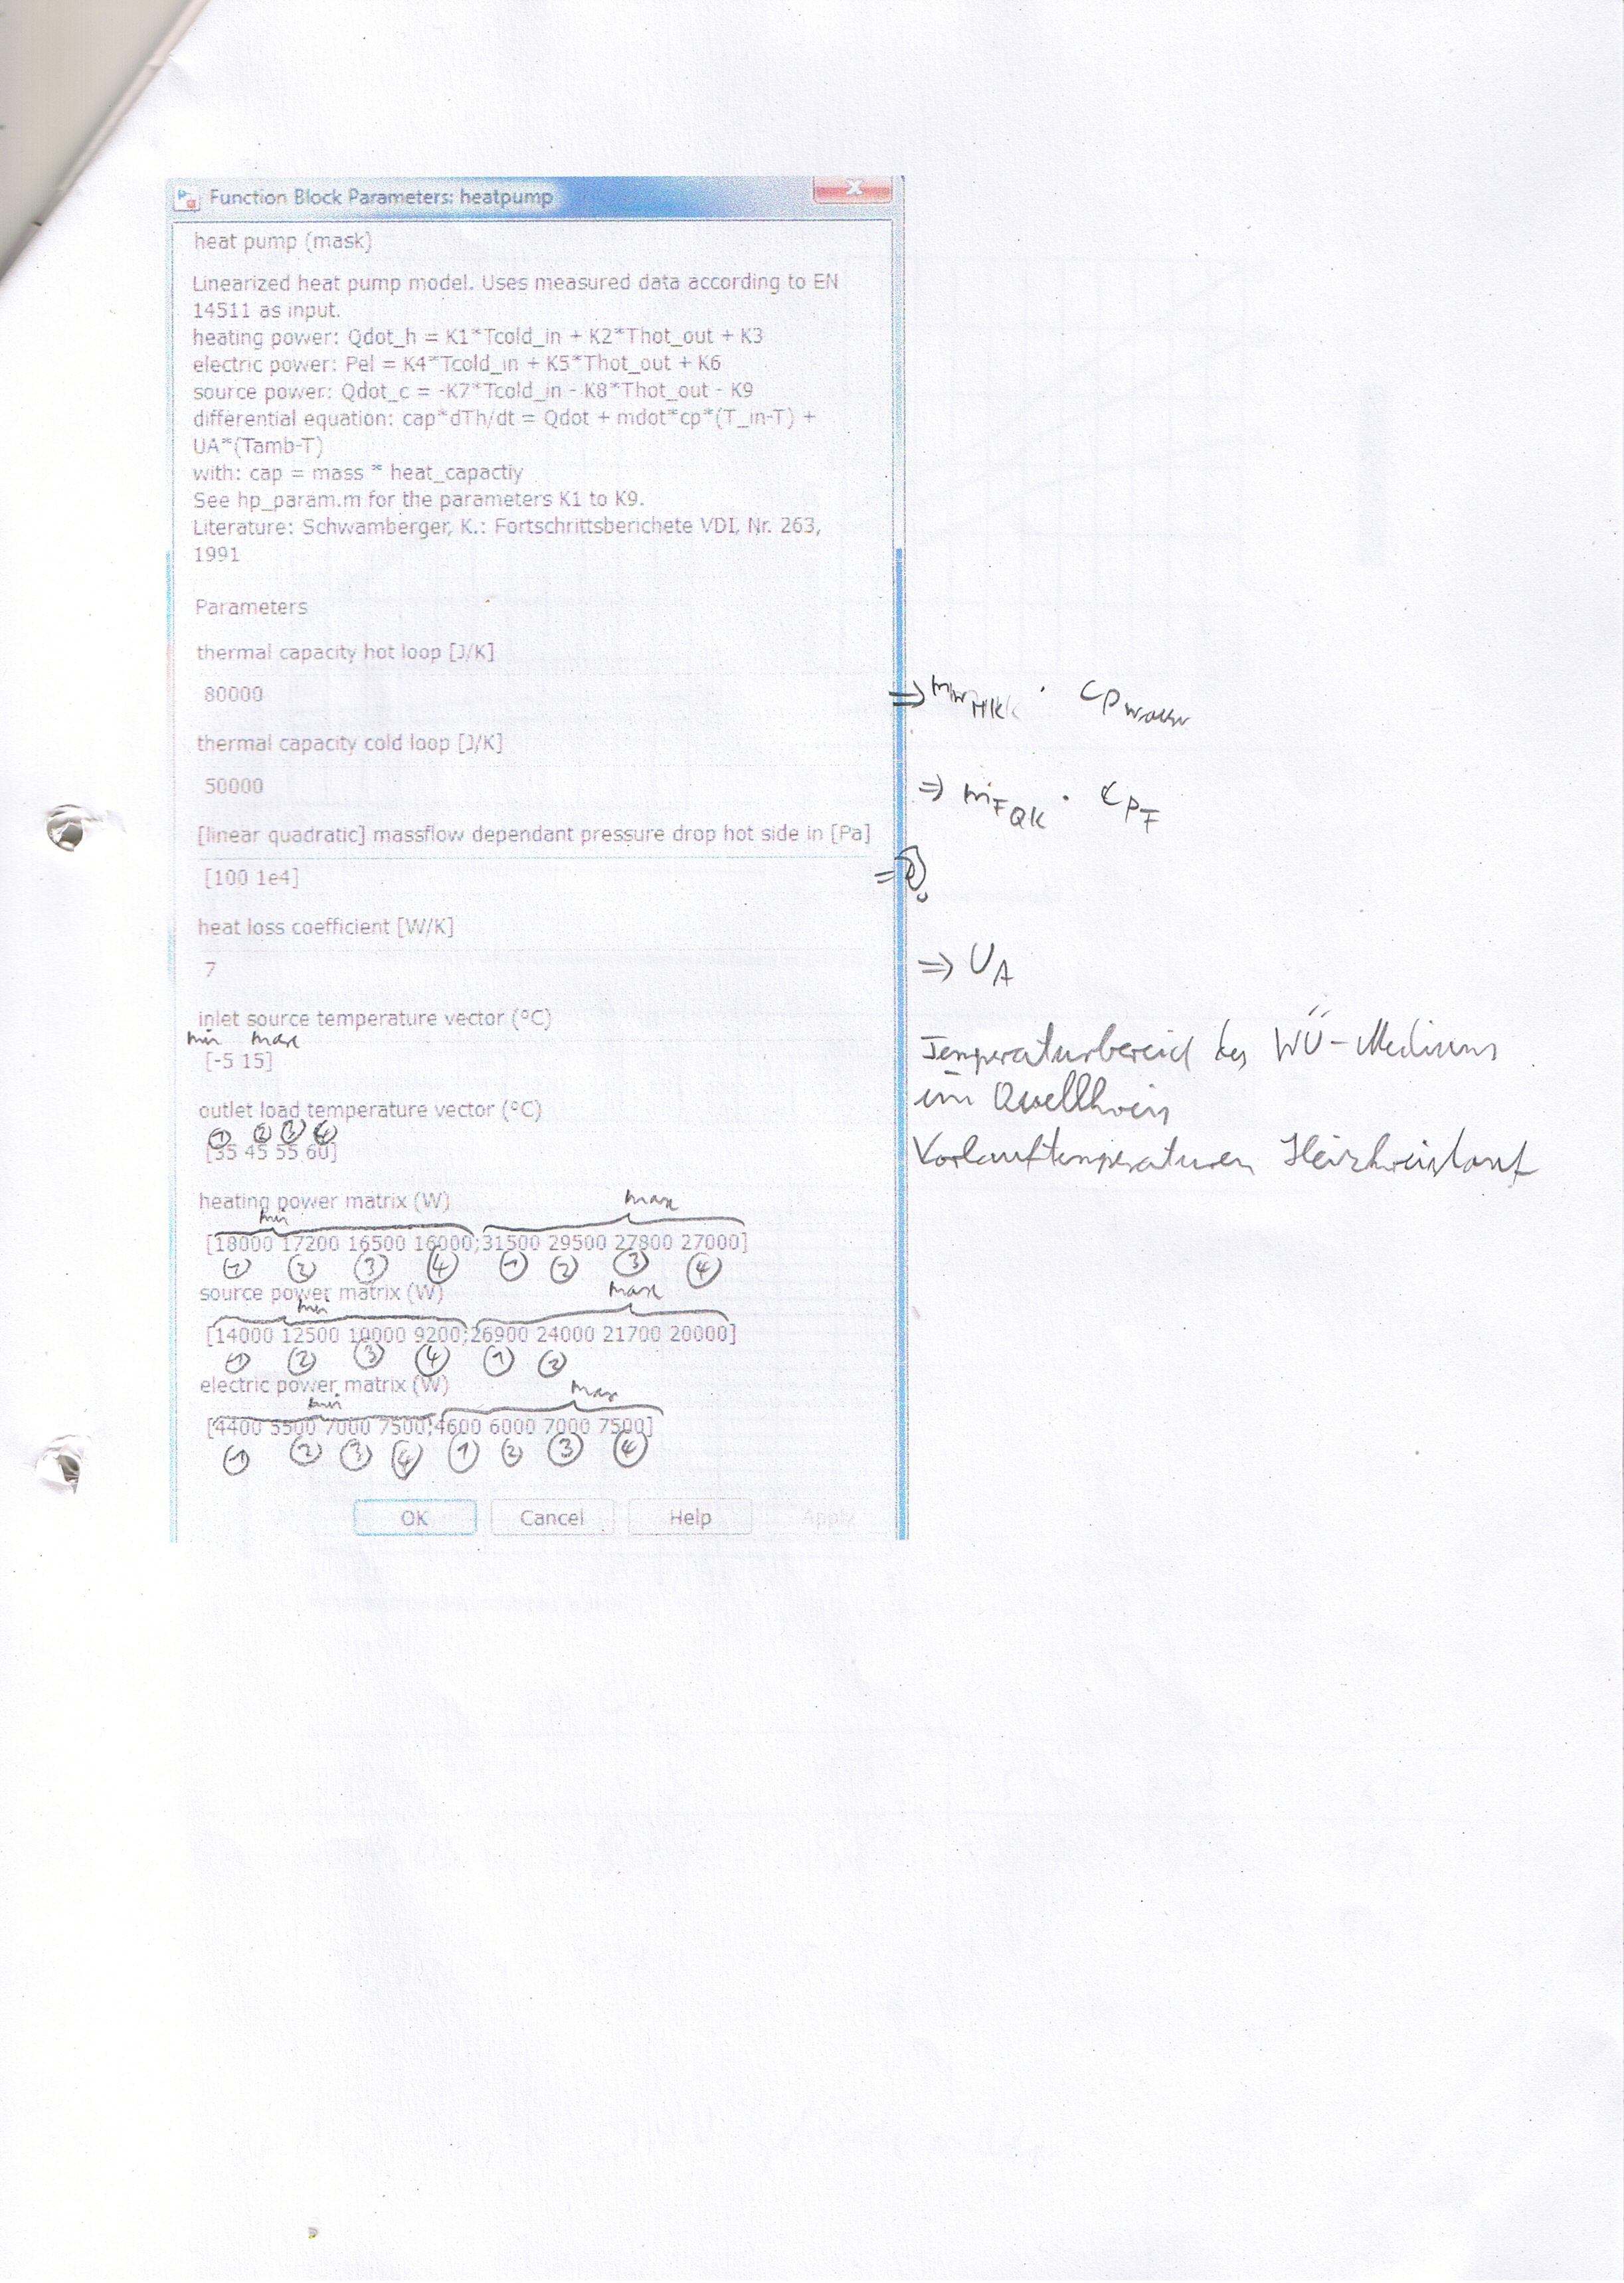 Function Block Parameters: heatpump
heat pump (mask)
Linearized heat pump model. Uses measured data according to EN
14511 as input.
heating power: Qdot_h = K1*Tcold_in + K2*Thot_out + K3
electric power: Pel = K4*Tcold_in + K5*Thot_out + K6
source power: Qdot_c = -K7*Tcold_in - K8*Thot_out - K9
differential equation: cap*dTh/dt = Qdot + mdot*cp*(T_in-T) +
UA*(Tamb-T)
with: cap = mass * heat_capactiy
See hp_param.m for the parameters K1 to K9.
Literature: Schwamberger, K.: Fortschrittsberichete VDI, Nr. 263,
1991
Parameters
thermal capacity hot loop [J/K]
80000 ⇒ mWHKK · cpWasser
thermal capacity cold loop [J/K]
50000 ⇒ mFQK · cpF
[linear quadratic] massflow dependant pressure drop hot side in [Pa]
[100 1e4] ⇒ ?
heat loss coefficient [W/K]
7 ⇒ UA
inlet source temperature vector (°C)
min max
[-5 15] Temperaturbereich des WÜ-Mediums
im Quellkreis
outlet load temperature vector (°C)
① ② ③ ④
[35 45 55 60] Vorlauftemperaturen Heizkreislauf
heating power matrix (W)
min max
[18000 17200 16500 16000;31500 29500 27800 27000]
① ② ③ ④ ① ② ③ ④
source power matrix (W)
min max
[14000 12500 10000 9200;26900 24000 21700 20000]
① ② ③ ④ ① ②
electric power matrix (W)
min max
[4400 5500 7000 7500;4600 6000 7000 7500]
① ② ③ ④ ① ② ③ ④
OK Cancel Help Apply